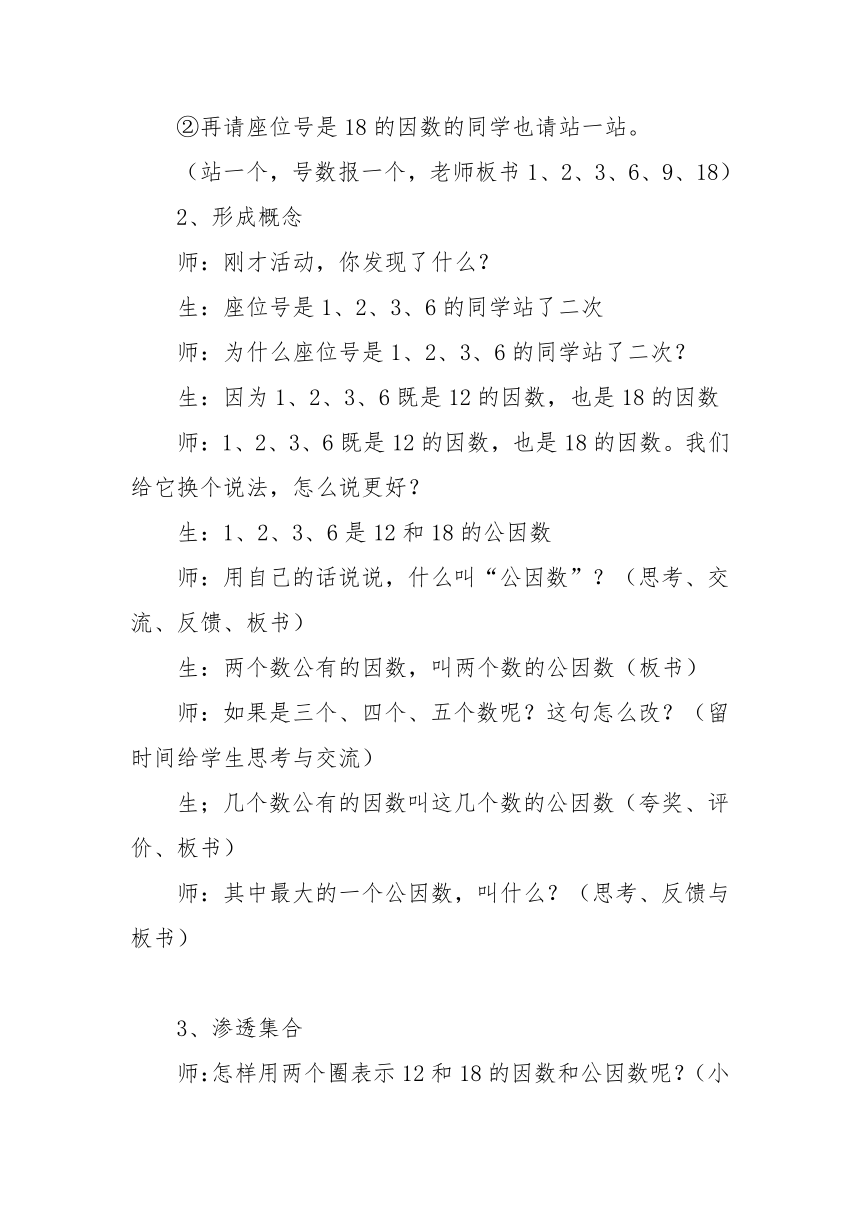 ②再请座位号是 18 的因数的同学也请站一站。
（站一个，号数报一个，老师板书 1、2、3、6、9、18）
2、形成概念
师：刚才活动，你发现了什么？
生：座位号是 1、2、3、6 的同学站了二次
师：为什么座位号是 1、2、3、6 的同学站了二次？
生：因为 1、2、3、6 既是 12 的因数，也是 18 的因数
师：1、2、3、6 既是 12 的因数，也是 18 的因数。我们
给它换个说法，怎么说更好？
生：1、2、3、6 是 12 和 18 的公因数
师：用自己的话说说，什么叫“公因数”？（思考、交
流、反馈、板书）
生：两个数公有的因数，叫两个数的公因数（板书）
师：如果是三个、四个、五个数呢？这句怎么改？（留
时间给学生思考与交流）
生；几个数公有的因数叫这几个数的公因数（夸奖、评
价、板书）
师：其中最大的一个公因数，叫什么？（思考、反馈与
板书）
3、渗透集合
师：怎样用两个圈表示 12 和 18 的因数和公因数呢？（小